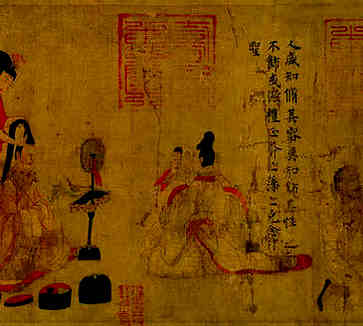 人咸知脩其容莫知飾其性性之
不飾或愆禮正斧之藻之克念作
聖